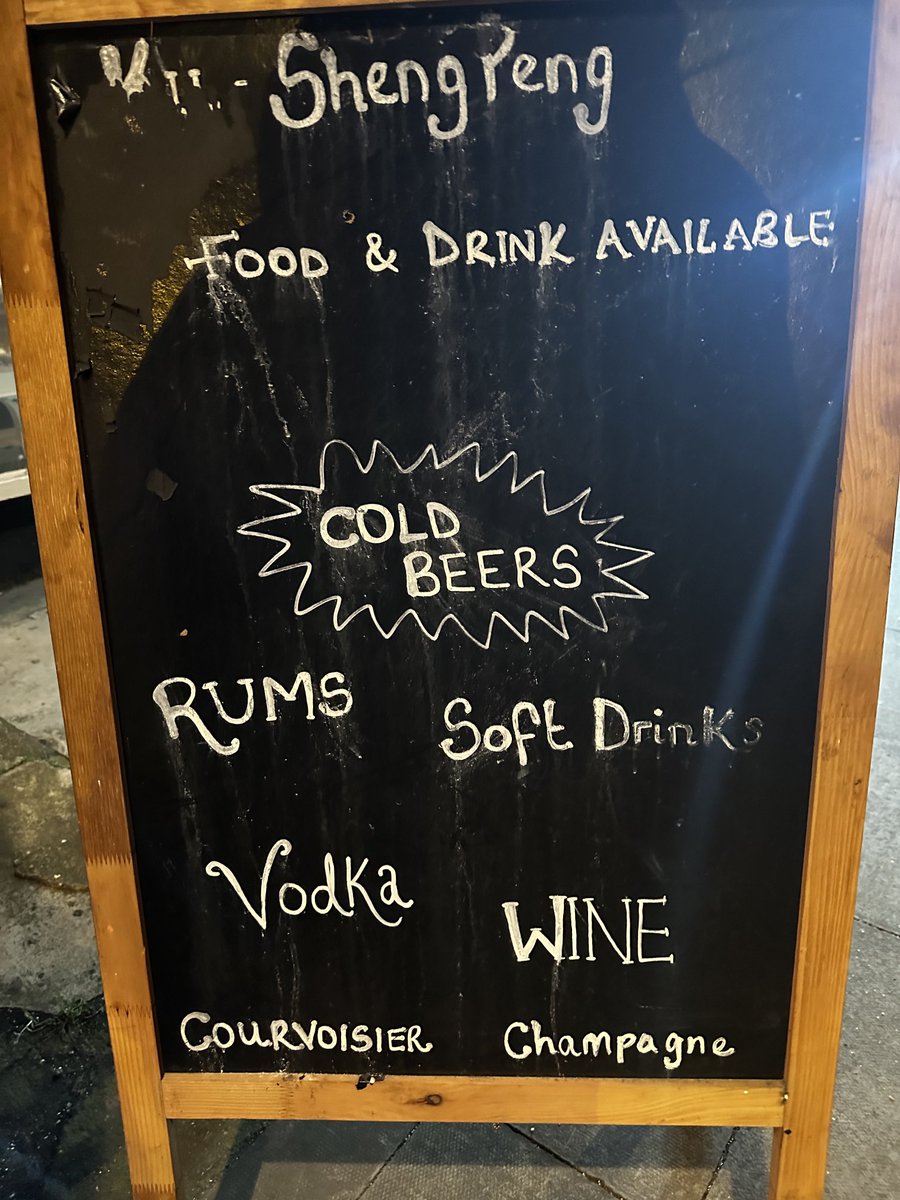 Sheng Peng
FOOD & DRINK AVAILABLE
COLD
BEERS
RUMS
Soft Drinks
Vodka
WINE
COURVOISIER
Champagne